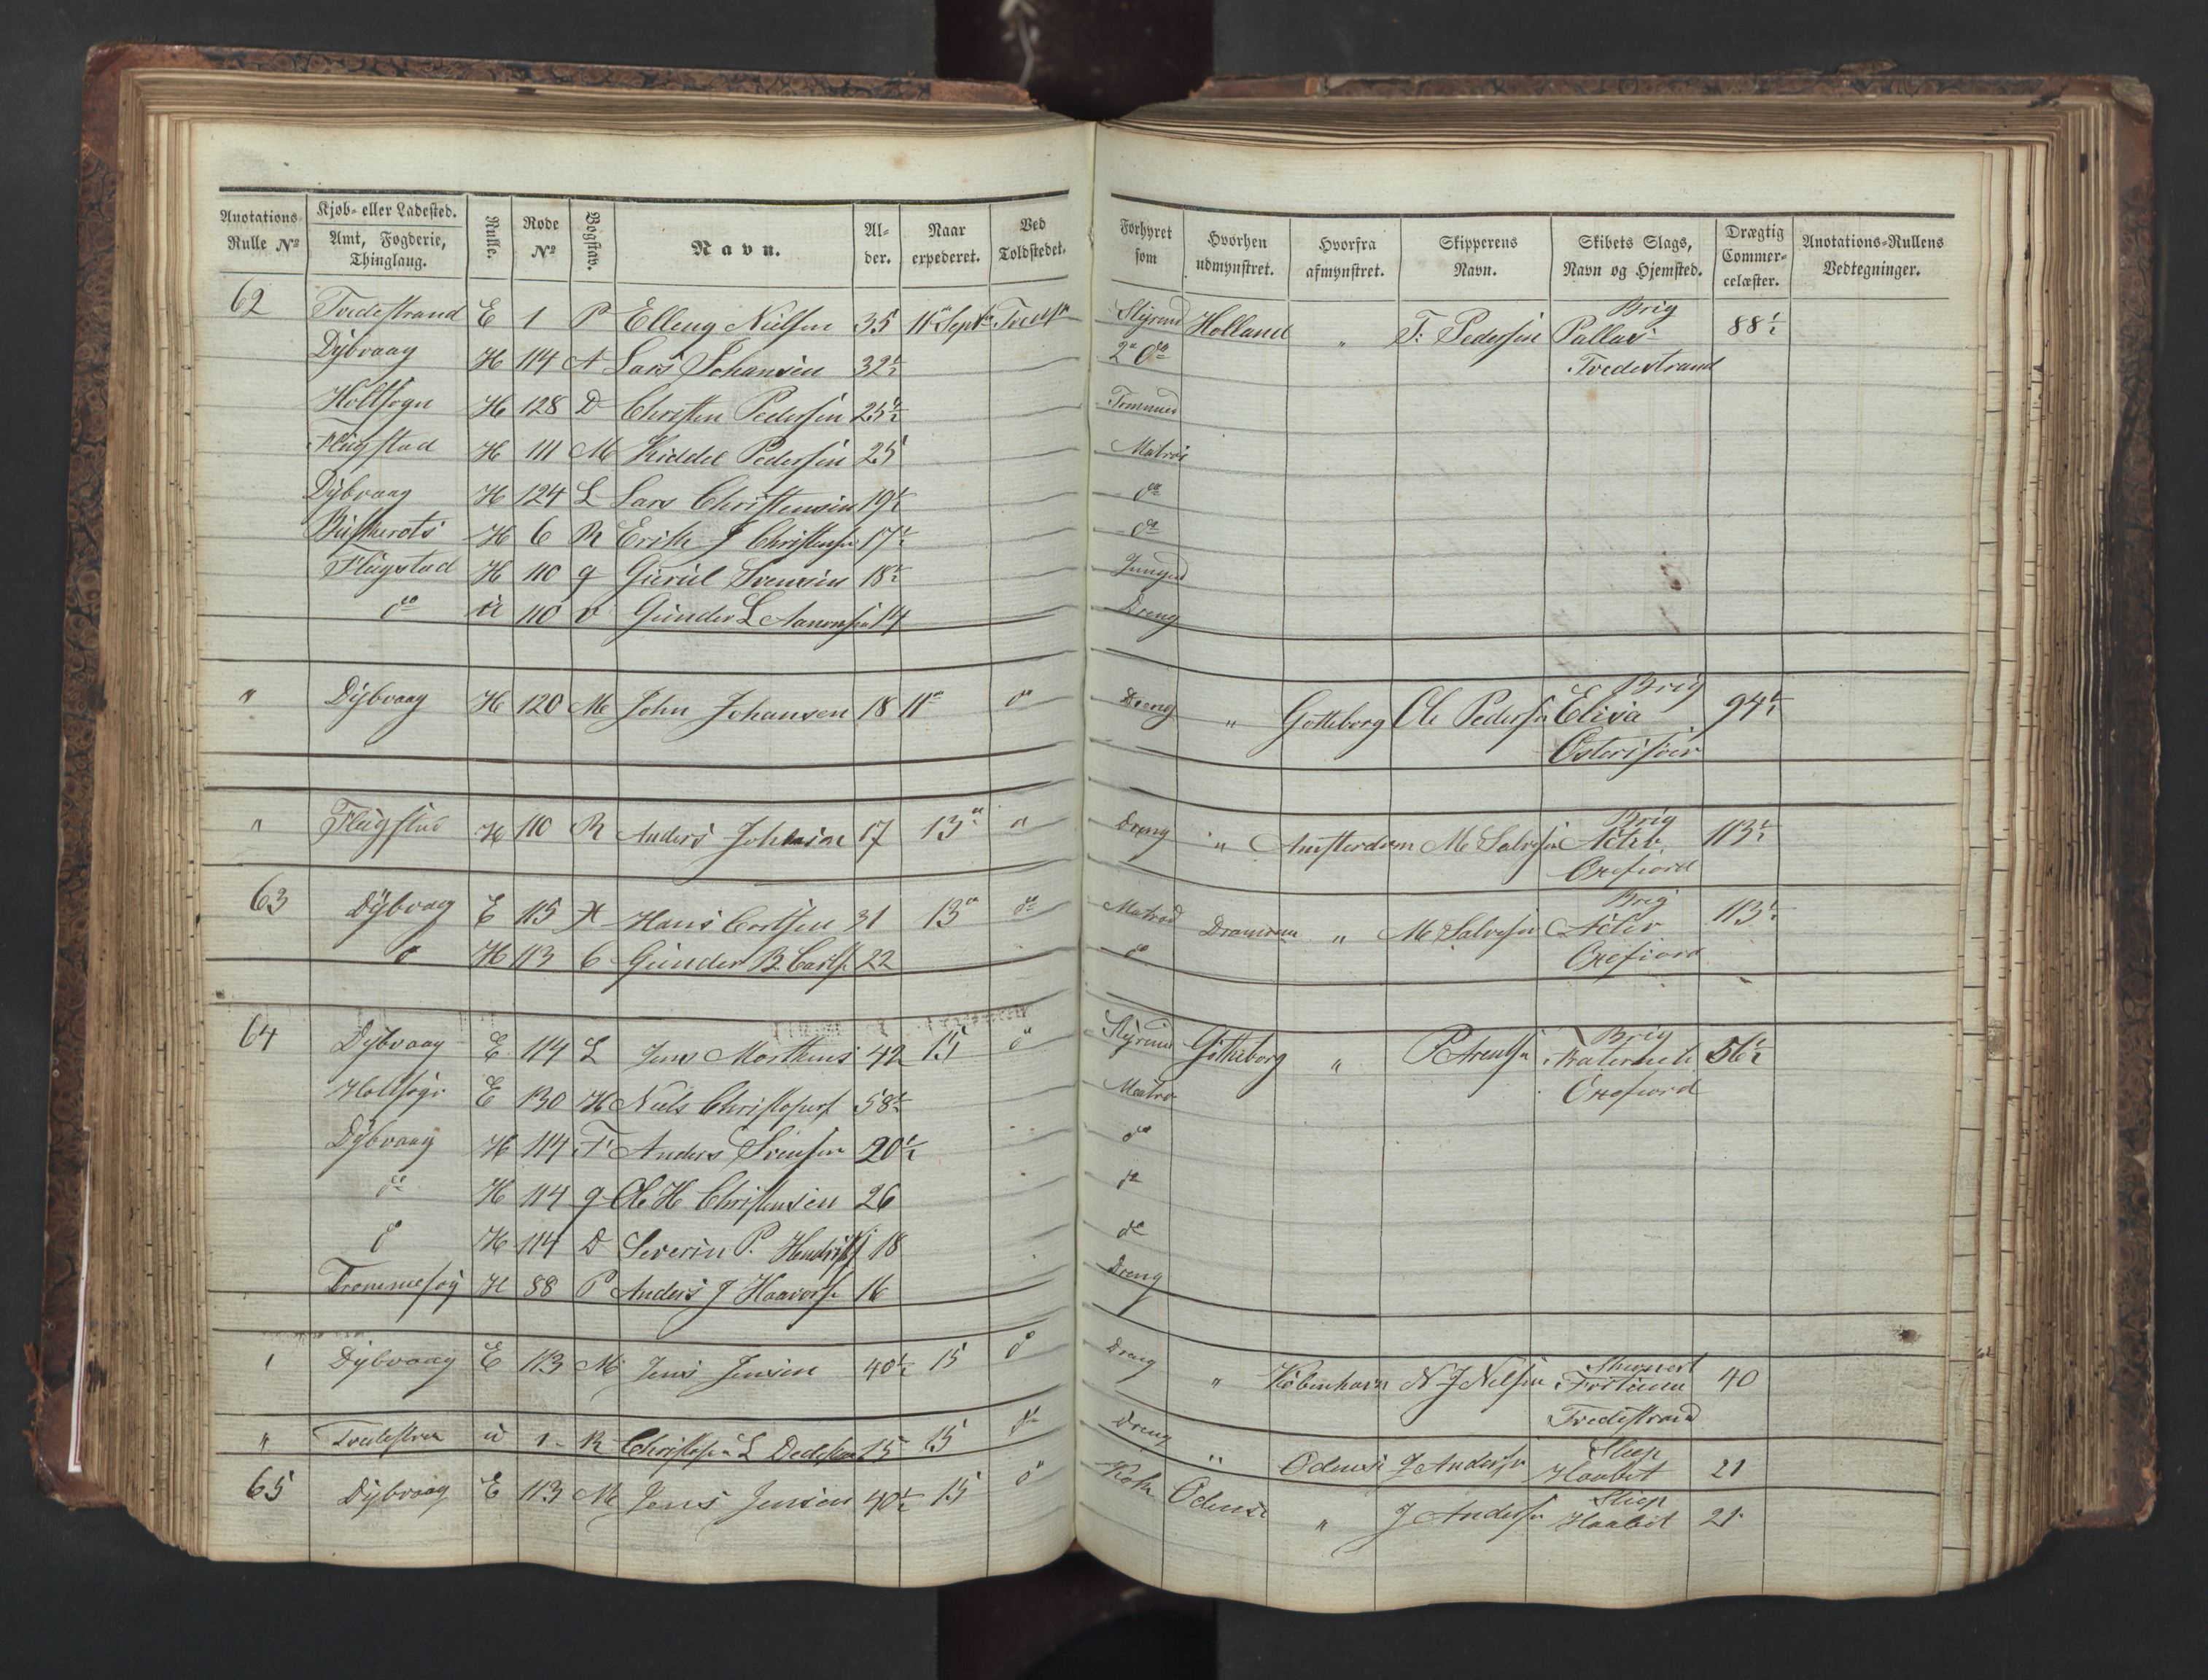 Anotations- Rulle №
Kjøb- eller Ladested.
Amt, Fogderie, Thinglaug.
Rulle.
Rode №
Bogstav.
Navn.
Al- der.
Naar expederet.
Ved Toldstedet.
Forhyret som
Hvorhen udmynstret.
Hvorfra afmynstret.
Skipperens Navn.
Skibets Slags, Navn og Hjemsted.
Drægtig Commer- celæster.
Anotations-Rullens Vedtegninger.
62 Tvedestrand E 1 P Elleng Nielsen 35 11te Septbr Tvedestr Styrmd Holland " T: Pedersen Brig Pallas Tvedestrand 88½
Dybvaag H 114 A Lars Johansen 32½ 2n do
Holtsogn H 128 D Christen Pedersen 25½ Tømmerd
Flagstad H 111 M Kiddel Pedersen 25 Matros
Dybvaag H 124 L Lars Christensen 19½ do
H 6 R Erik J Christensen 17½ do
Flagstad H 110 q Gierul Svensen 18½ Jungmd
do U 110 v Gunder L Aanonsen 14 Dreng
" Dybvaag H 120 M John Johansen 18 11te do Dreng " Gotteborg Ole Pedersen Brig Elisa Østerisøer 94½
" Flagstad H 110 R Anders Johnsen 17 13de " Dreng " Amsterdam M Salvesen Brig Activ Oxefiord 113½
63 Dybvaag E 115 H Hans 31 13de do Matros Drammen " M Salvesen Brig Activ Oxefiord 113½
do H 113 C Gunder B. Carls 22 do
64 Dybvaag E 114 L Jens Morthens 42 15 do Styrmd Gotheborg " P Arentsen Brig Oxefiord 56½
Holtsogn E 130 H Niels Christophers 58½ Matros
Dybvaag H 114 F Anders Svensen 20½ do
do H 114 q Ole H Christensen 26 do
do H 114 D Severin P. Hendriks 18 do
Trommesog H 88 P Anders J Haavors 16 Dreng
" Dybvaag E 113 M Jens Jensen 40½ 15 do Dreng " Kiøbenhavn N J Nelsen Skonnert Fortuna Tvedestrand 40
" Tvedestran U 1 R Christopher L 15 15 do Dreng " Odense J Andersen Slup Haabet 21
65 Dybvaag E 113 M Jens Jensen 40½ 15 do Kok Odense " J Andersen Slup Haabet 21